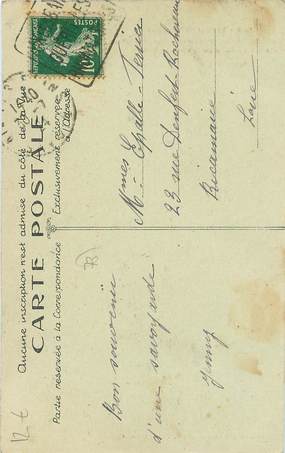 Aucune inscription n'est admise du côté de la Vue
CARTE POSTALE
Partie réservée à la Correspondance
Exclusivement réservée
à l'Adresse
POSTES
10
Mmes
Mlle Eyralle-Terrice
23 rue Denfert-Rochereau
Ricamarie
Loire
Bon souvenir
d'une savoyarde
Jenny
12 €